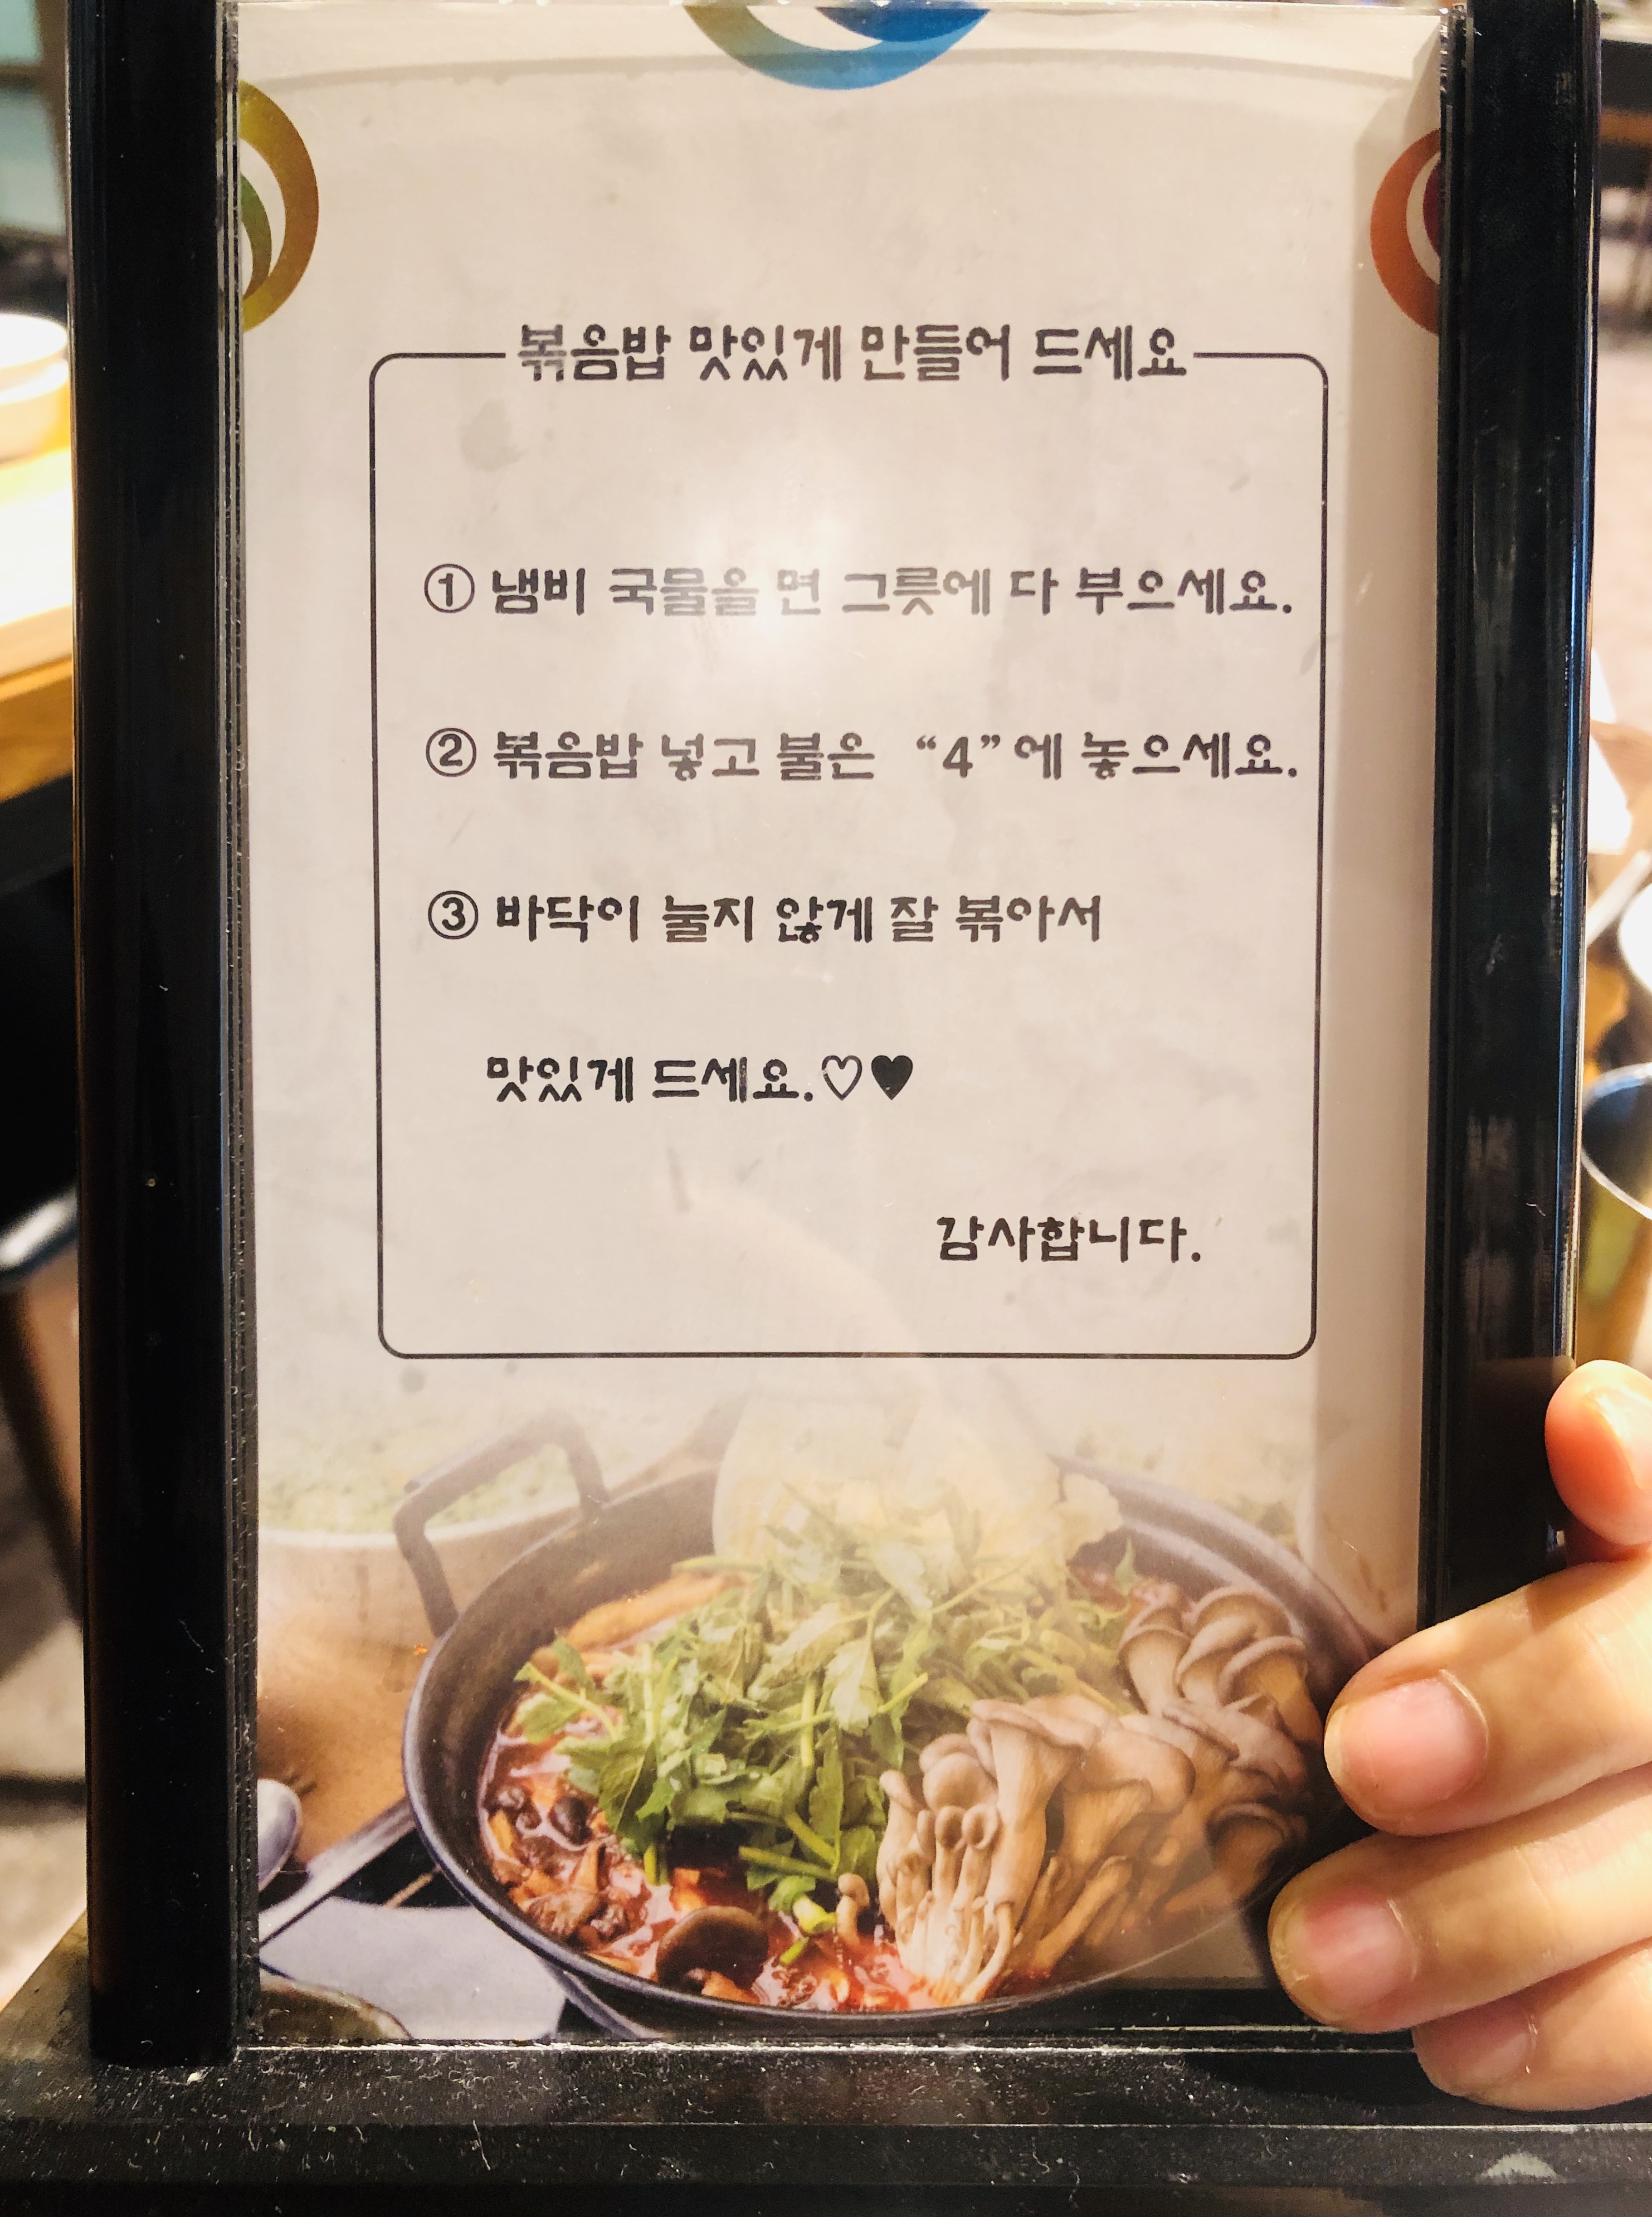 볶음밥 맛있게 만들어 드세요
① 냄비 국물을 면 그릇에 다 부으세요.
② 볶음밥 넣고 불은 “4”에 놓으세요.
③ 바닥이 눌지 않게 잘 볶아서
맛있게 드세요.♡♥
감사합니다.